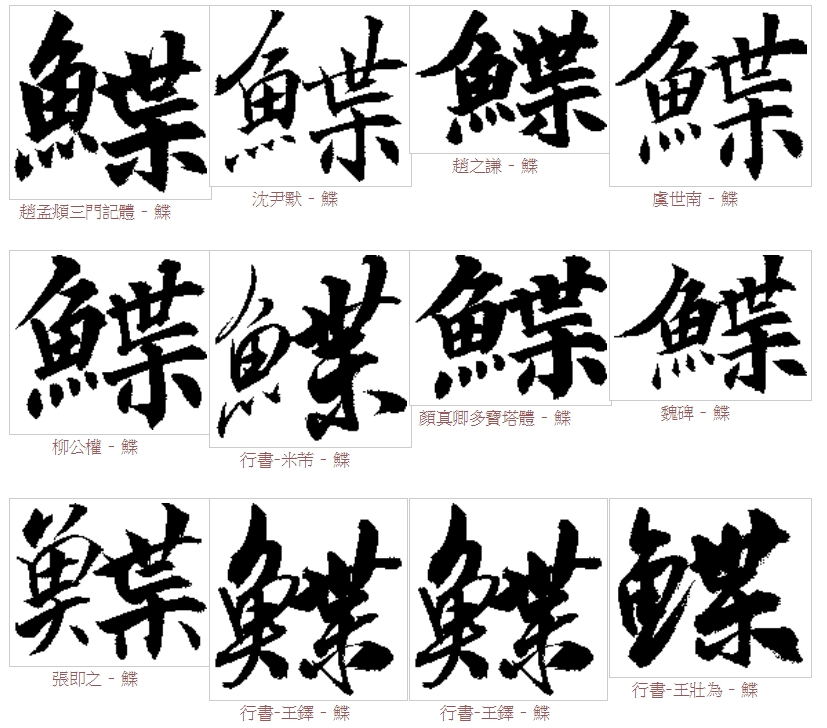 鰈 鰈 鰈 鰈
趙孟頫三門記體 - 鰈 沈尹默 - 鰈 趙之謙 - 鰈 虞世南 - 鰈
鰈 鰈 鰈 鰈
柳公權 - 鰈 行書-米芾 - 鰈 顏真卿多寶塔體 - 鰈 魏碑 - 鰈
鰈 鰈 鰈 鰈
張即之 - 鰈 行書-王鐸 - 鰈 行書-王鐸 - 鰈 行書-王壯為 - 鰈